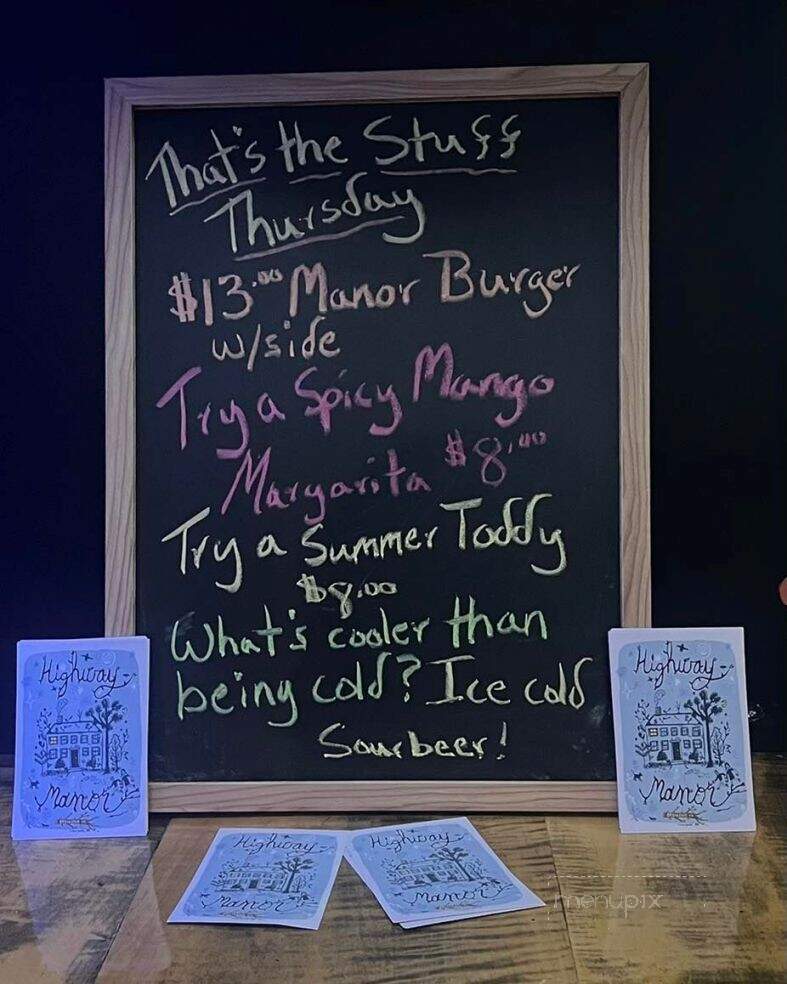 That's the Stuff
Thursday
$13.00 Manor Burger
w/side
Try a Spicy Mango
Margarita $8.00
Try a Summer Toddy
$8.00
What's cooler than
being cold? Ice cold
Sour beer!
Highway
Manor
Highway
Manor
Highway
Manor
Highway
Manor
menupix